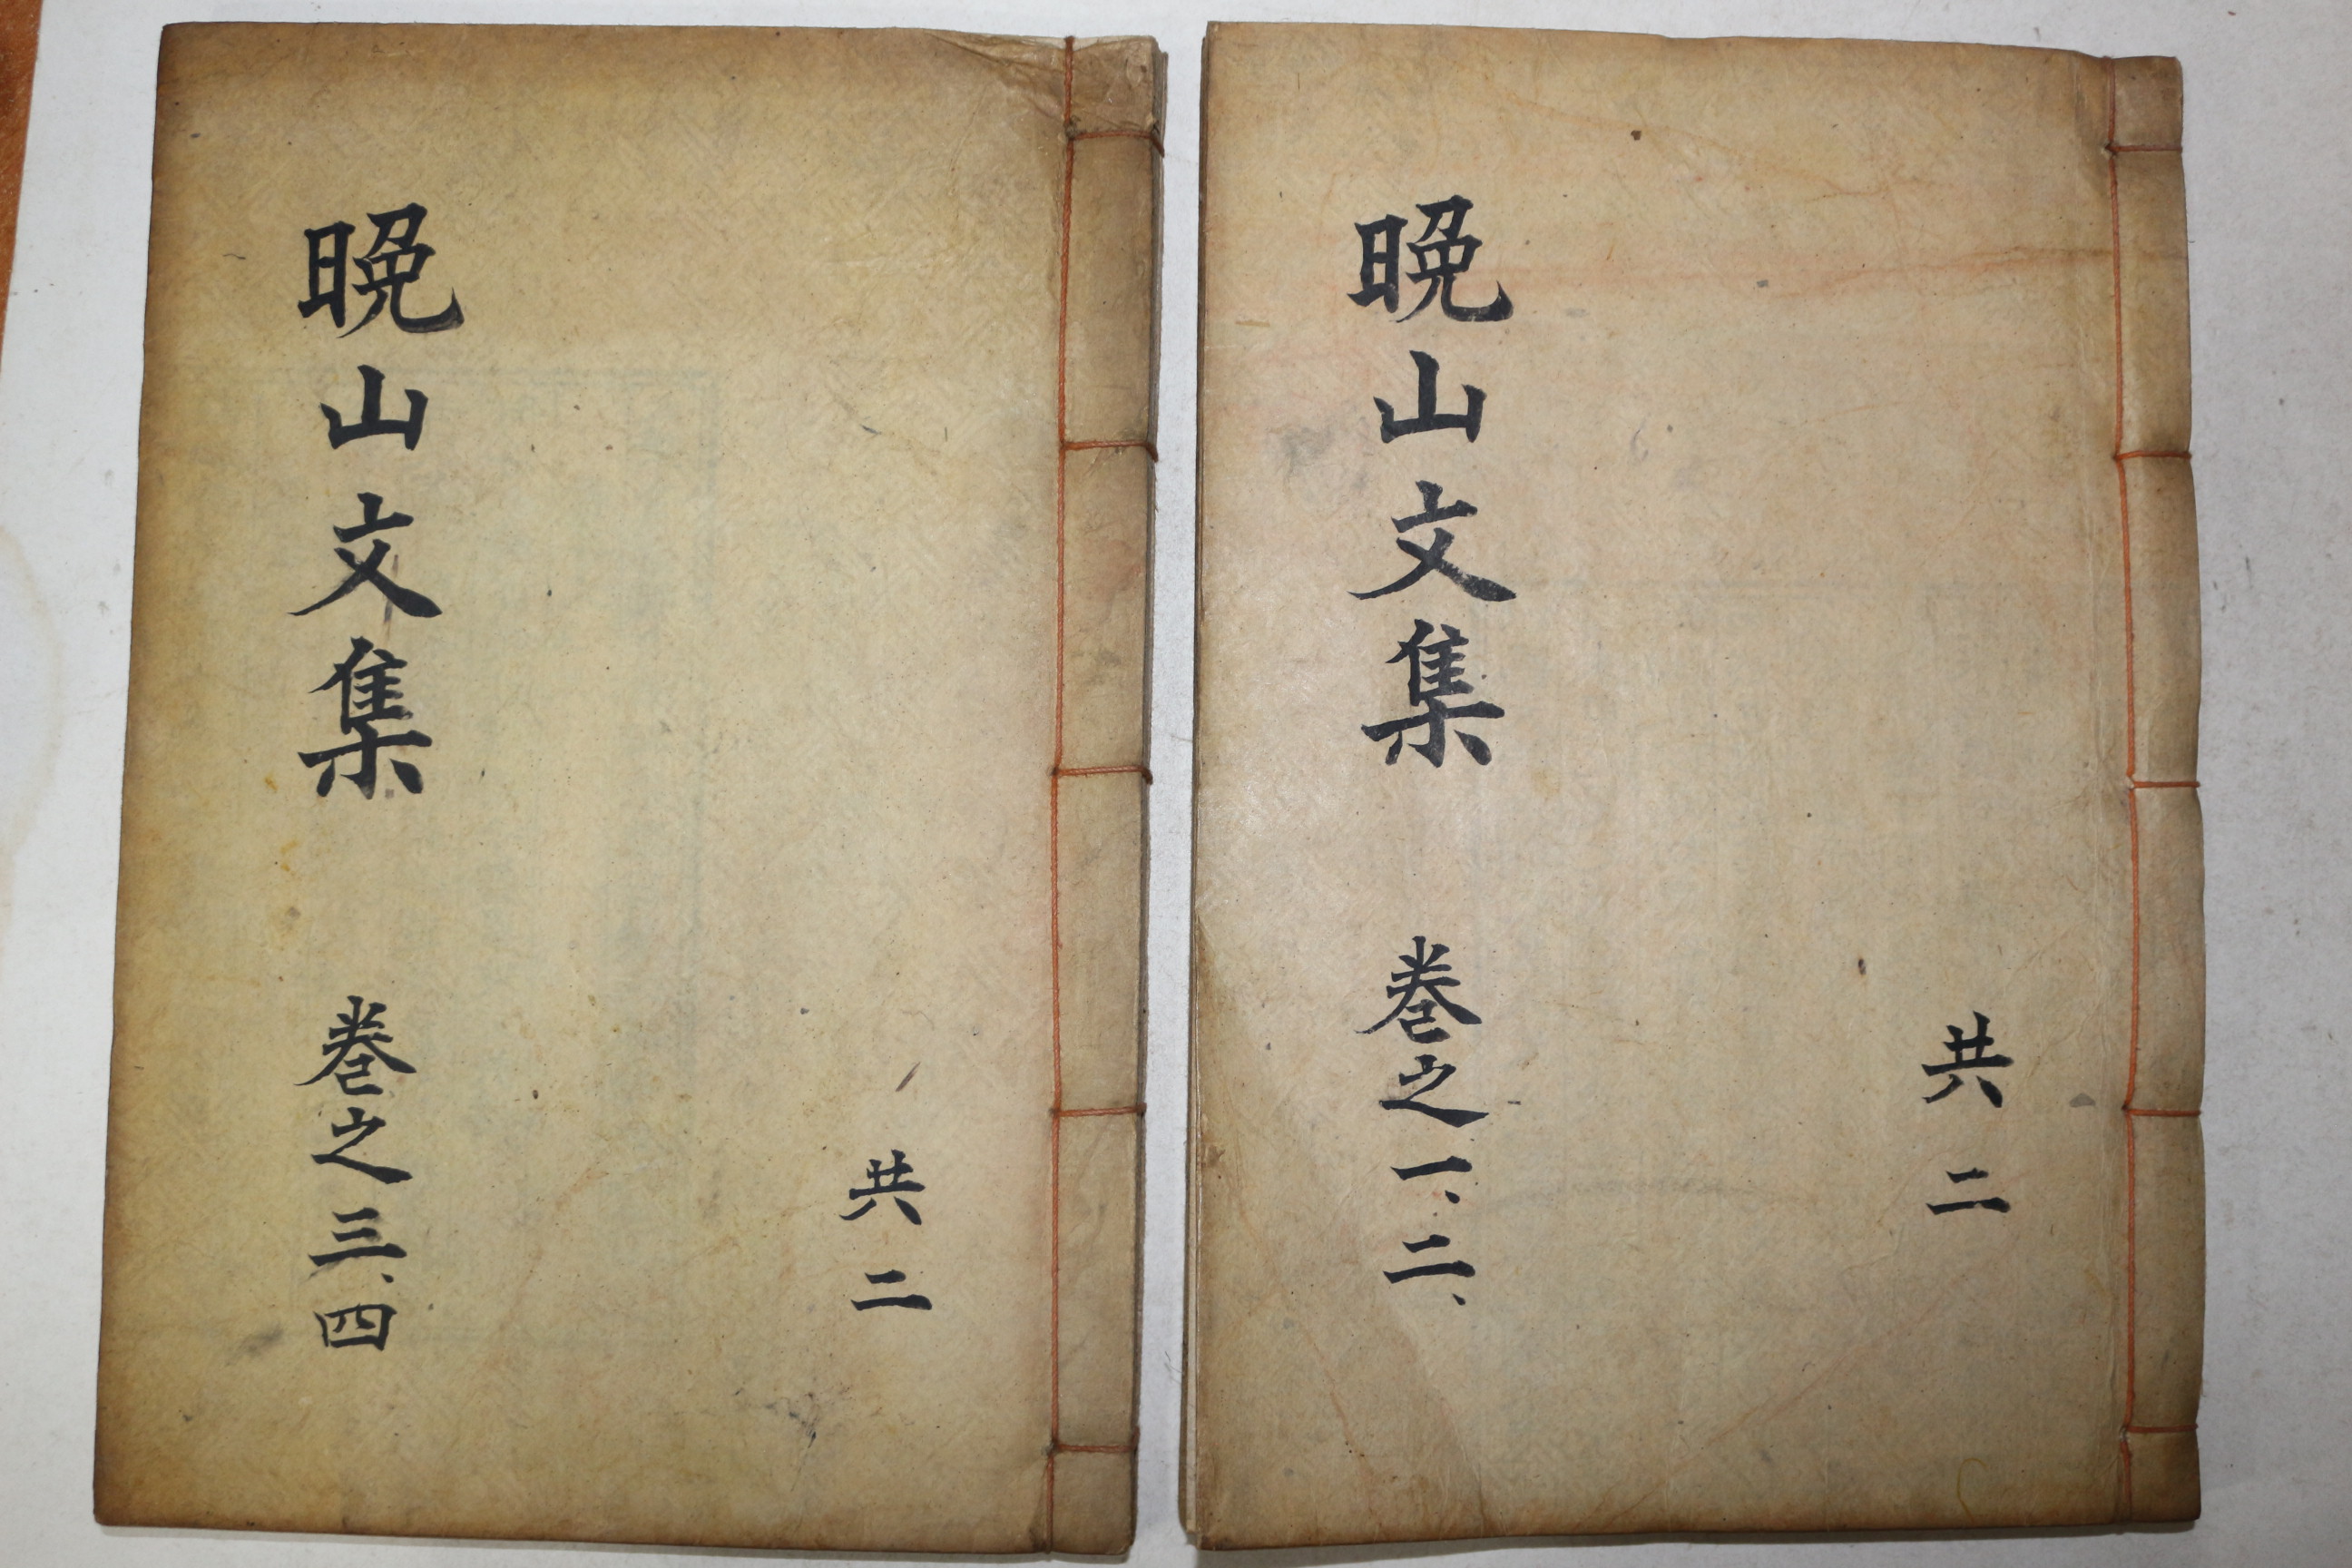 共二
晩山文集 卷之一、二、
共二
晩山文集 卷之三、四